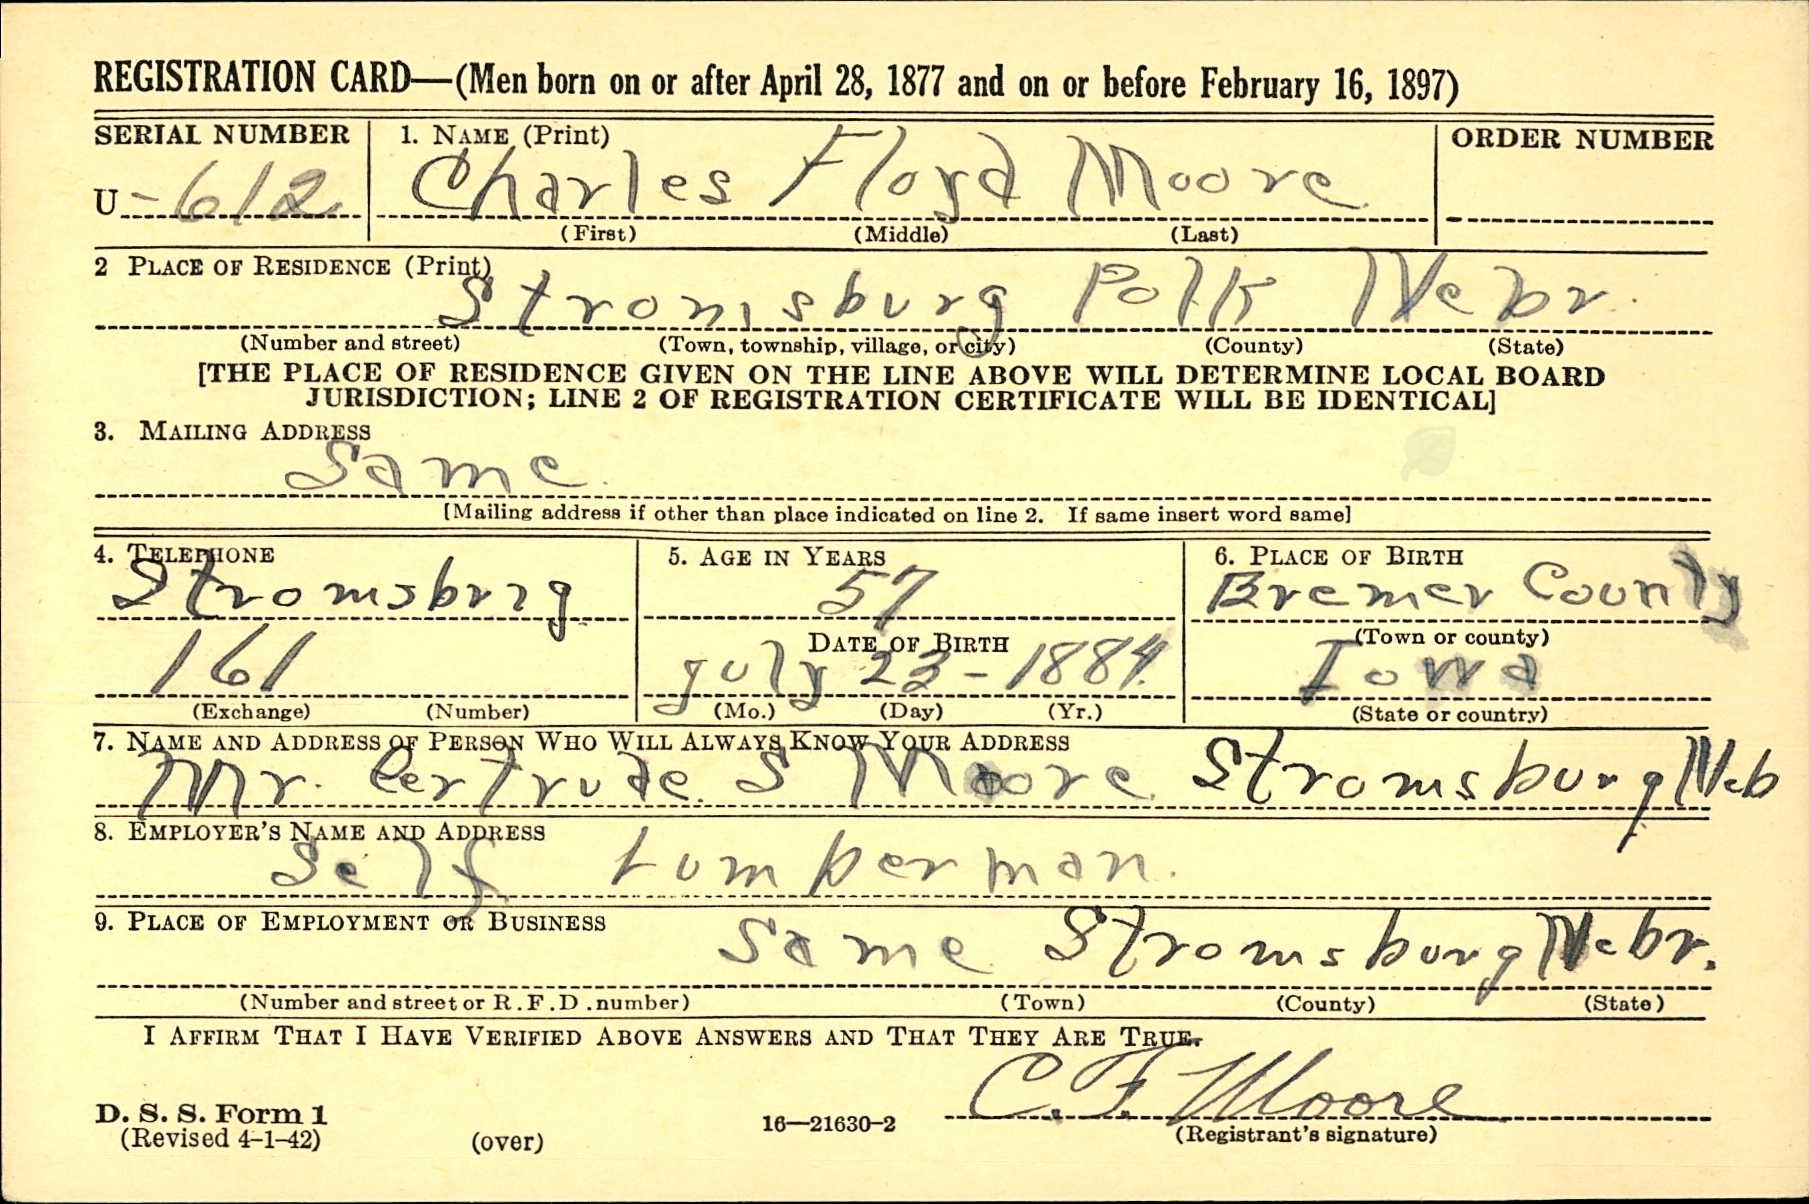 REGISTRATION CARD—(Men born on or after April 28, 1877 and on or before February 16, 1897)
SERIAL NUMBER
1. NAME (Print)
ORDER NUMBER
U -612
Charles Floyd Moore
(First) (Middle) (Last)
2 PLACE OF RESIDENCE (Print)
Stromsburg Polk Nebr.
(Number and street) (Town, township, village, or city) (County) (State)
[THE PLACE OF RESIDENCE GIVEN ON THE LINE ABOVE WILL DETERMINE LOCAL BOARD
JURISDICTION; LINE 2 OF REGISTRATION CERTIFICATE WILL BE IDENTICAL]
3. MAILING ADDRESS
Same.
[Mailing address if other than place indicated on line 2. If same insert word same]
4. TELEPHONE
Stromsburg
161
(Exchange) (Number)
5. AGE IN YEARS
57
DATE OF BIRTH
July 23-1884.
(Mo.) (Day) (Yr.)
6. PLACE OF BIRTH
Bremer County
(Town or county)
Iowa
(State or country)
7. NAME AND ADDRESS OF PERSON WHO WILL ALWAYS KNOW YOUR ADDRESS
Mr. Gertrude S Moore. Stromsburg Neb
8. EMPLOYER'S NAME AND ADDRESS
Self Lumberman.
9. PLACE OF EMPLOYMENT OR BUSINESS
Same Stromsburg Nebr.
(Number and street or R.F.D. number) (Town) (County) (State)
I AFFIRM THAT I HAVE VERIFIED ABOVE ANSWERS AND THAT THEY ARE TRUE.
C. F. Moore
D. S. S. Form 1
(Revised 4-1-42) (over)
16—21630-2
(Registrant's signature)